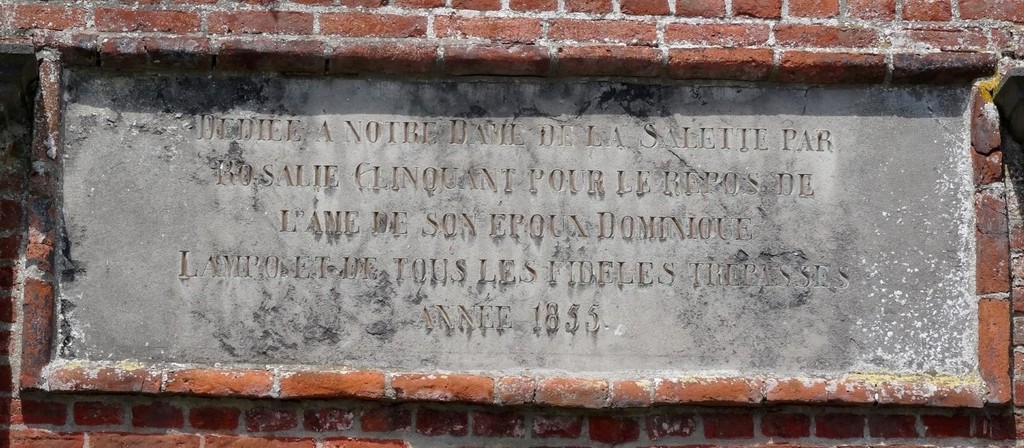 DEDIEE A NOTRE DAME DE LA SALETTE PAR
ROSALIE CLINQUANT POUR LE REPOS DE
L'AME DE SON EPOUX DOMINIQUE
LAMPO ET DE TOUS LES FIDELES TREPASSES
ANNÉE 1855.